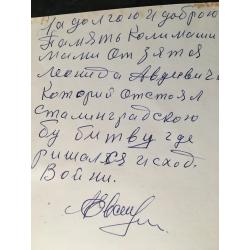 На долгою и доброю
Память Колимаши
Мали От зятя
Леонида Авдеевича
Которий отстоял
Сталинградскою
бу битву где
ришался исход.
Войни.